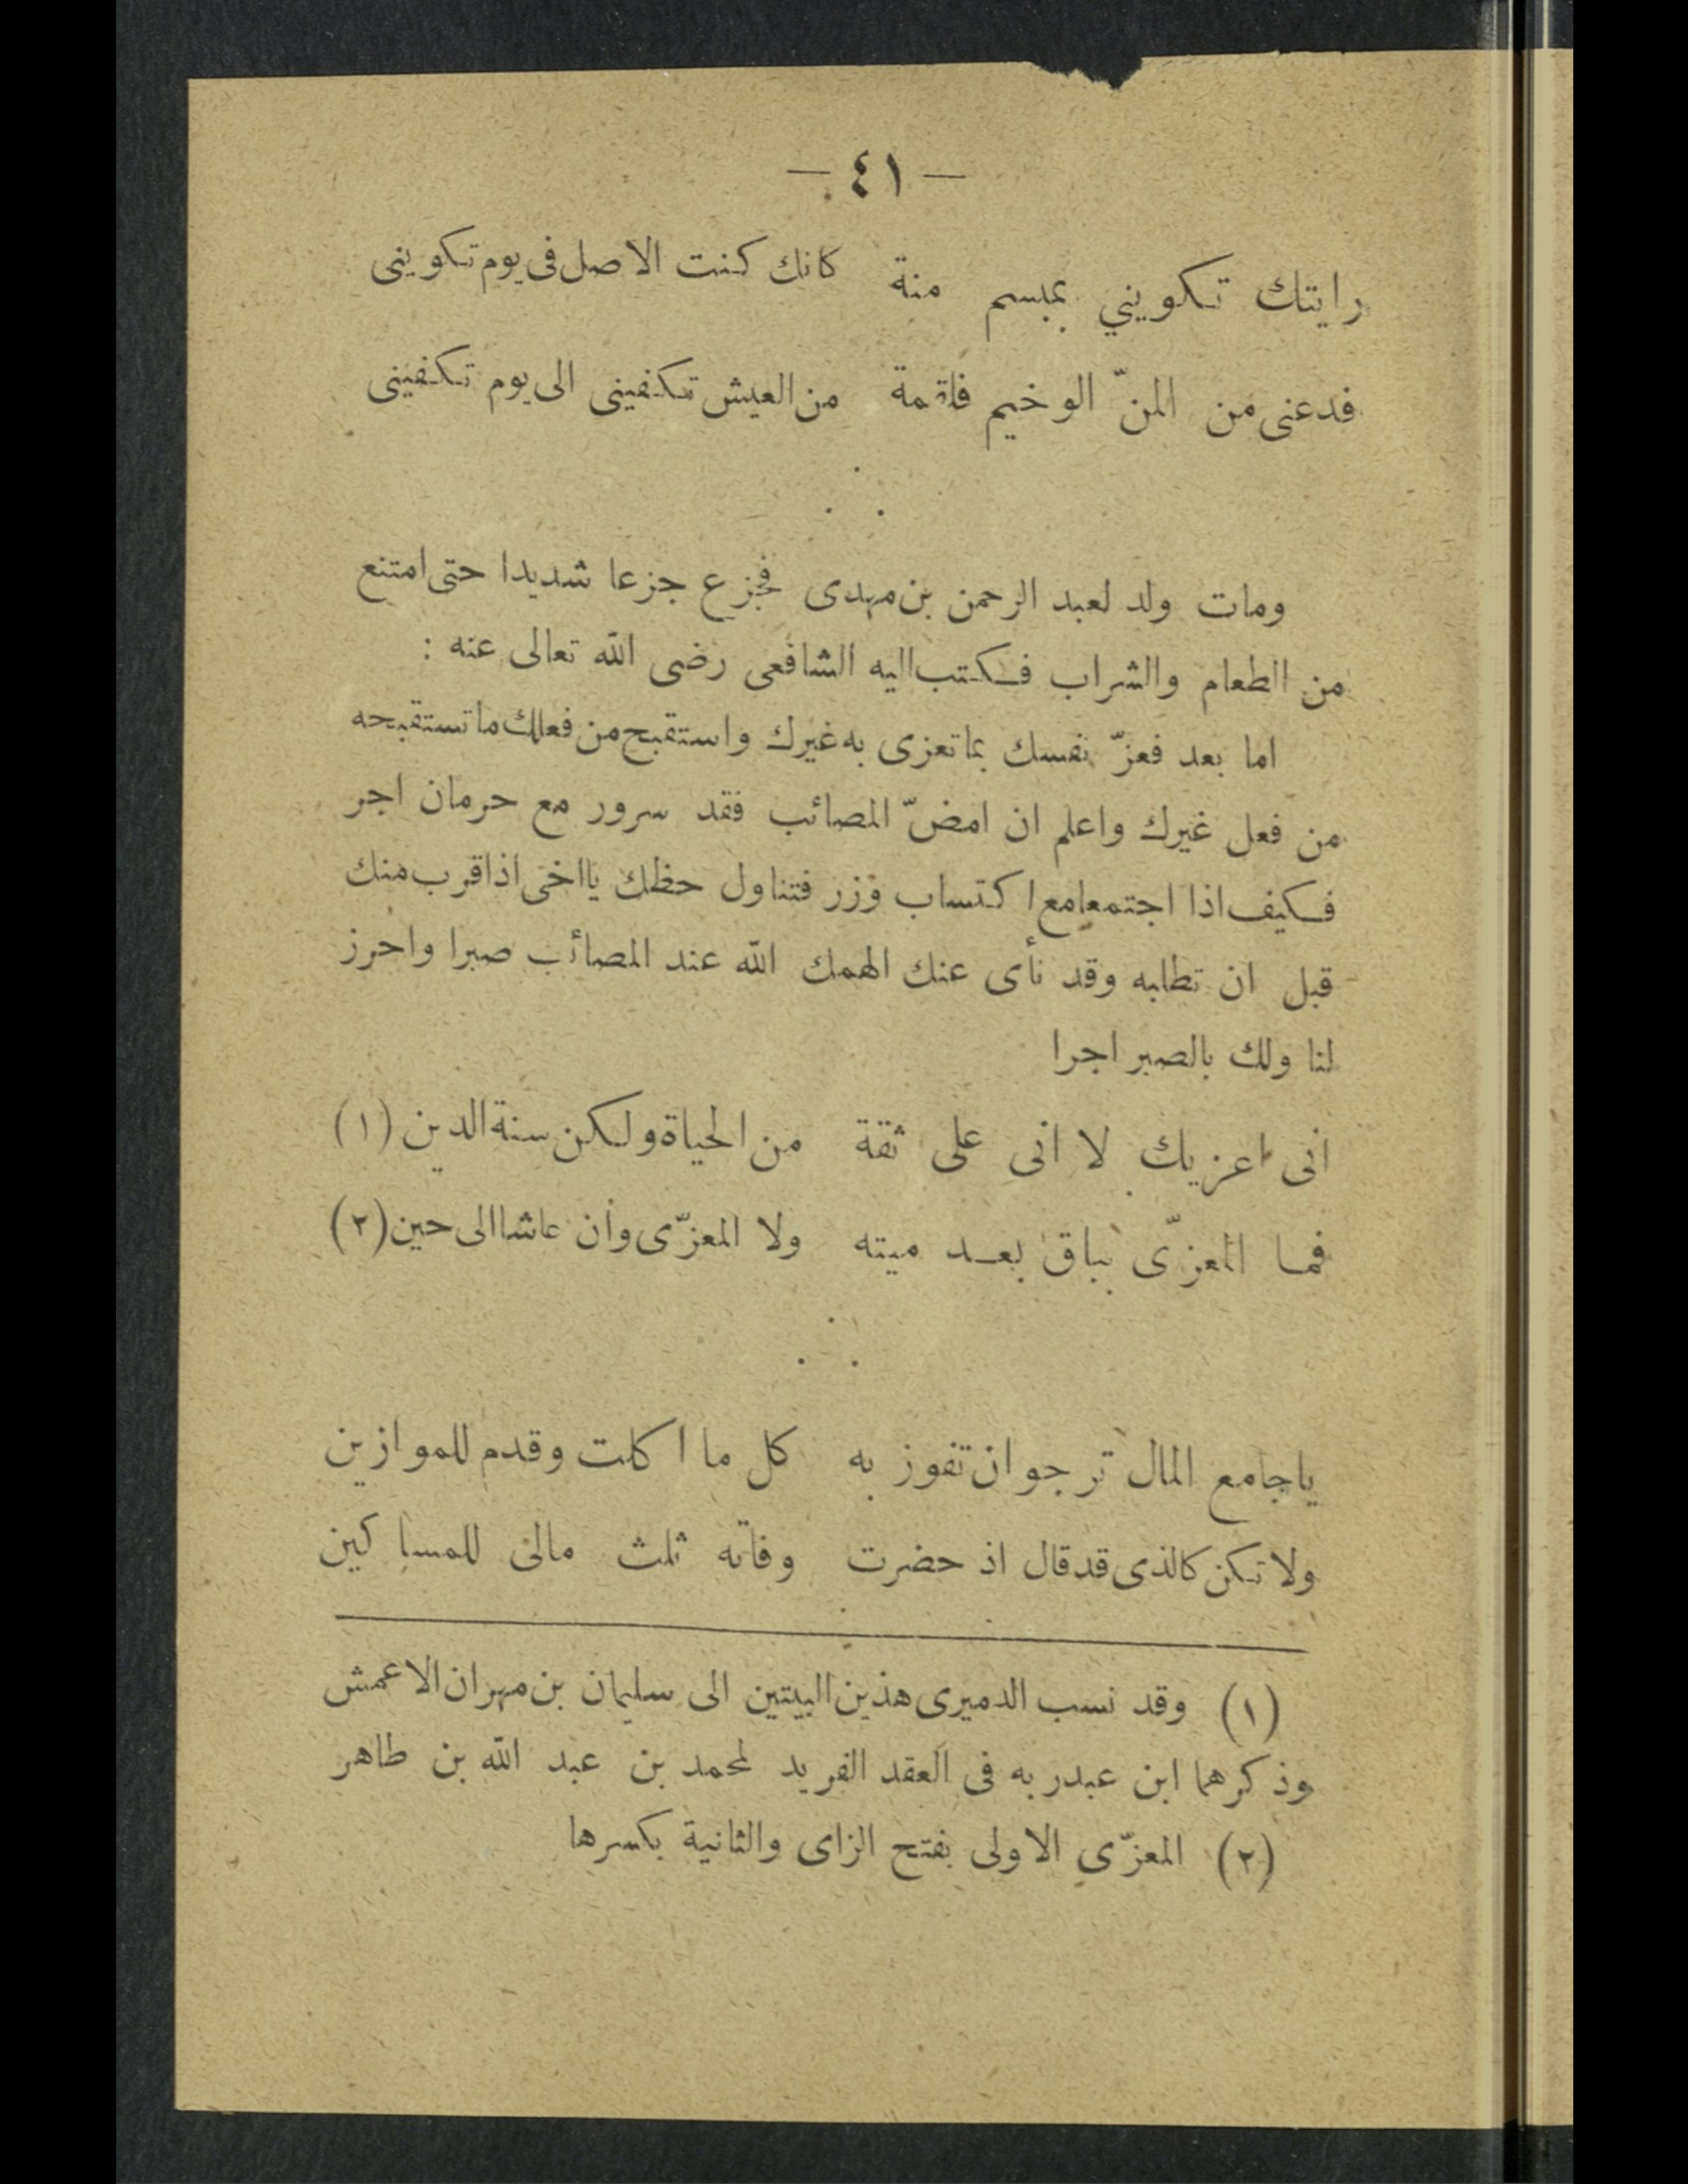 — ٤١ —
رايتك تكويني بمبسم منة كانك كنت الاصل فى يوم تكوينى
فدعنى من المنّ الوخيم فلقمة من العيش تكفينى الى يوم تكفينى
ومات ولد لعبد الرحمن بن مهدى فجزع جزعا شديدا حتى امتنع
من الطعام والشراب فكتب اليه الشافعى رضى الله تعالى عنه :
اما بعد فعزّ نفسك بما تعزى به غيرك واستقبح من فعلك ما تستقبحه
من فعل غيرك واعلم ان امضّ المصائب فقد سرور مع حرمان اجر
فكيف اذا اجتمعا مع اكتساب وزر فتناول حظك يا اخى اذا قرب منك
قبل ان تطلبه وقد نأى عنك الهمك الله عند المصائب صبرا واحرز
لنا ولك بالصبر اجرا
انى اعزيك لا انى على ثقة من الحياة ولكن سنة الدين (١)
فما المعزّى بباق بعد ميته ولا المعزّى وان عاشا الى حين (٢)
ياجامع المال ترجو ان تفوز به كل ما اكلت وقدم للموازين
ولا تكن كالذى قد قال اذ حضرت وفاته ثلث مالى للمساكين
(١) وقد نسب الدميرى هذين البيتين الى سليمان بن مهران الاعمش
وذكرهما ابن عبدربه فى العقد الفريد لمحمد بن عبد الله بن طاهر
(٢) المعزّى الاولى بفتح الزاى والثانية بكسرها